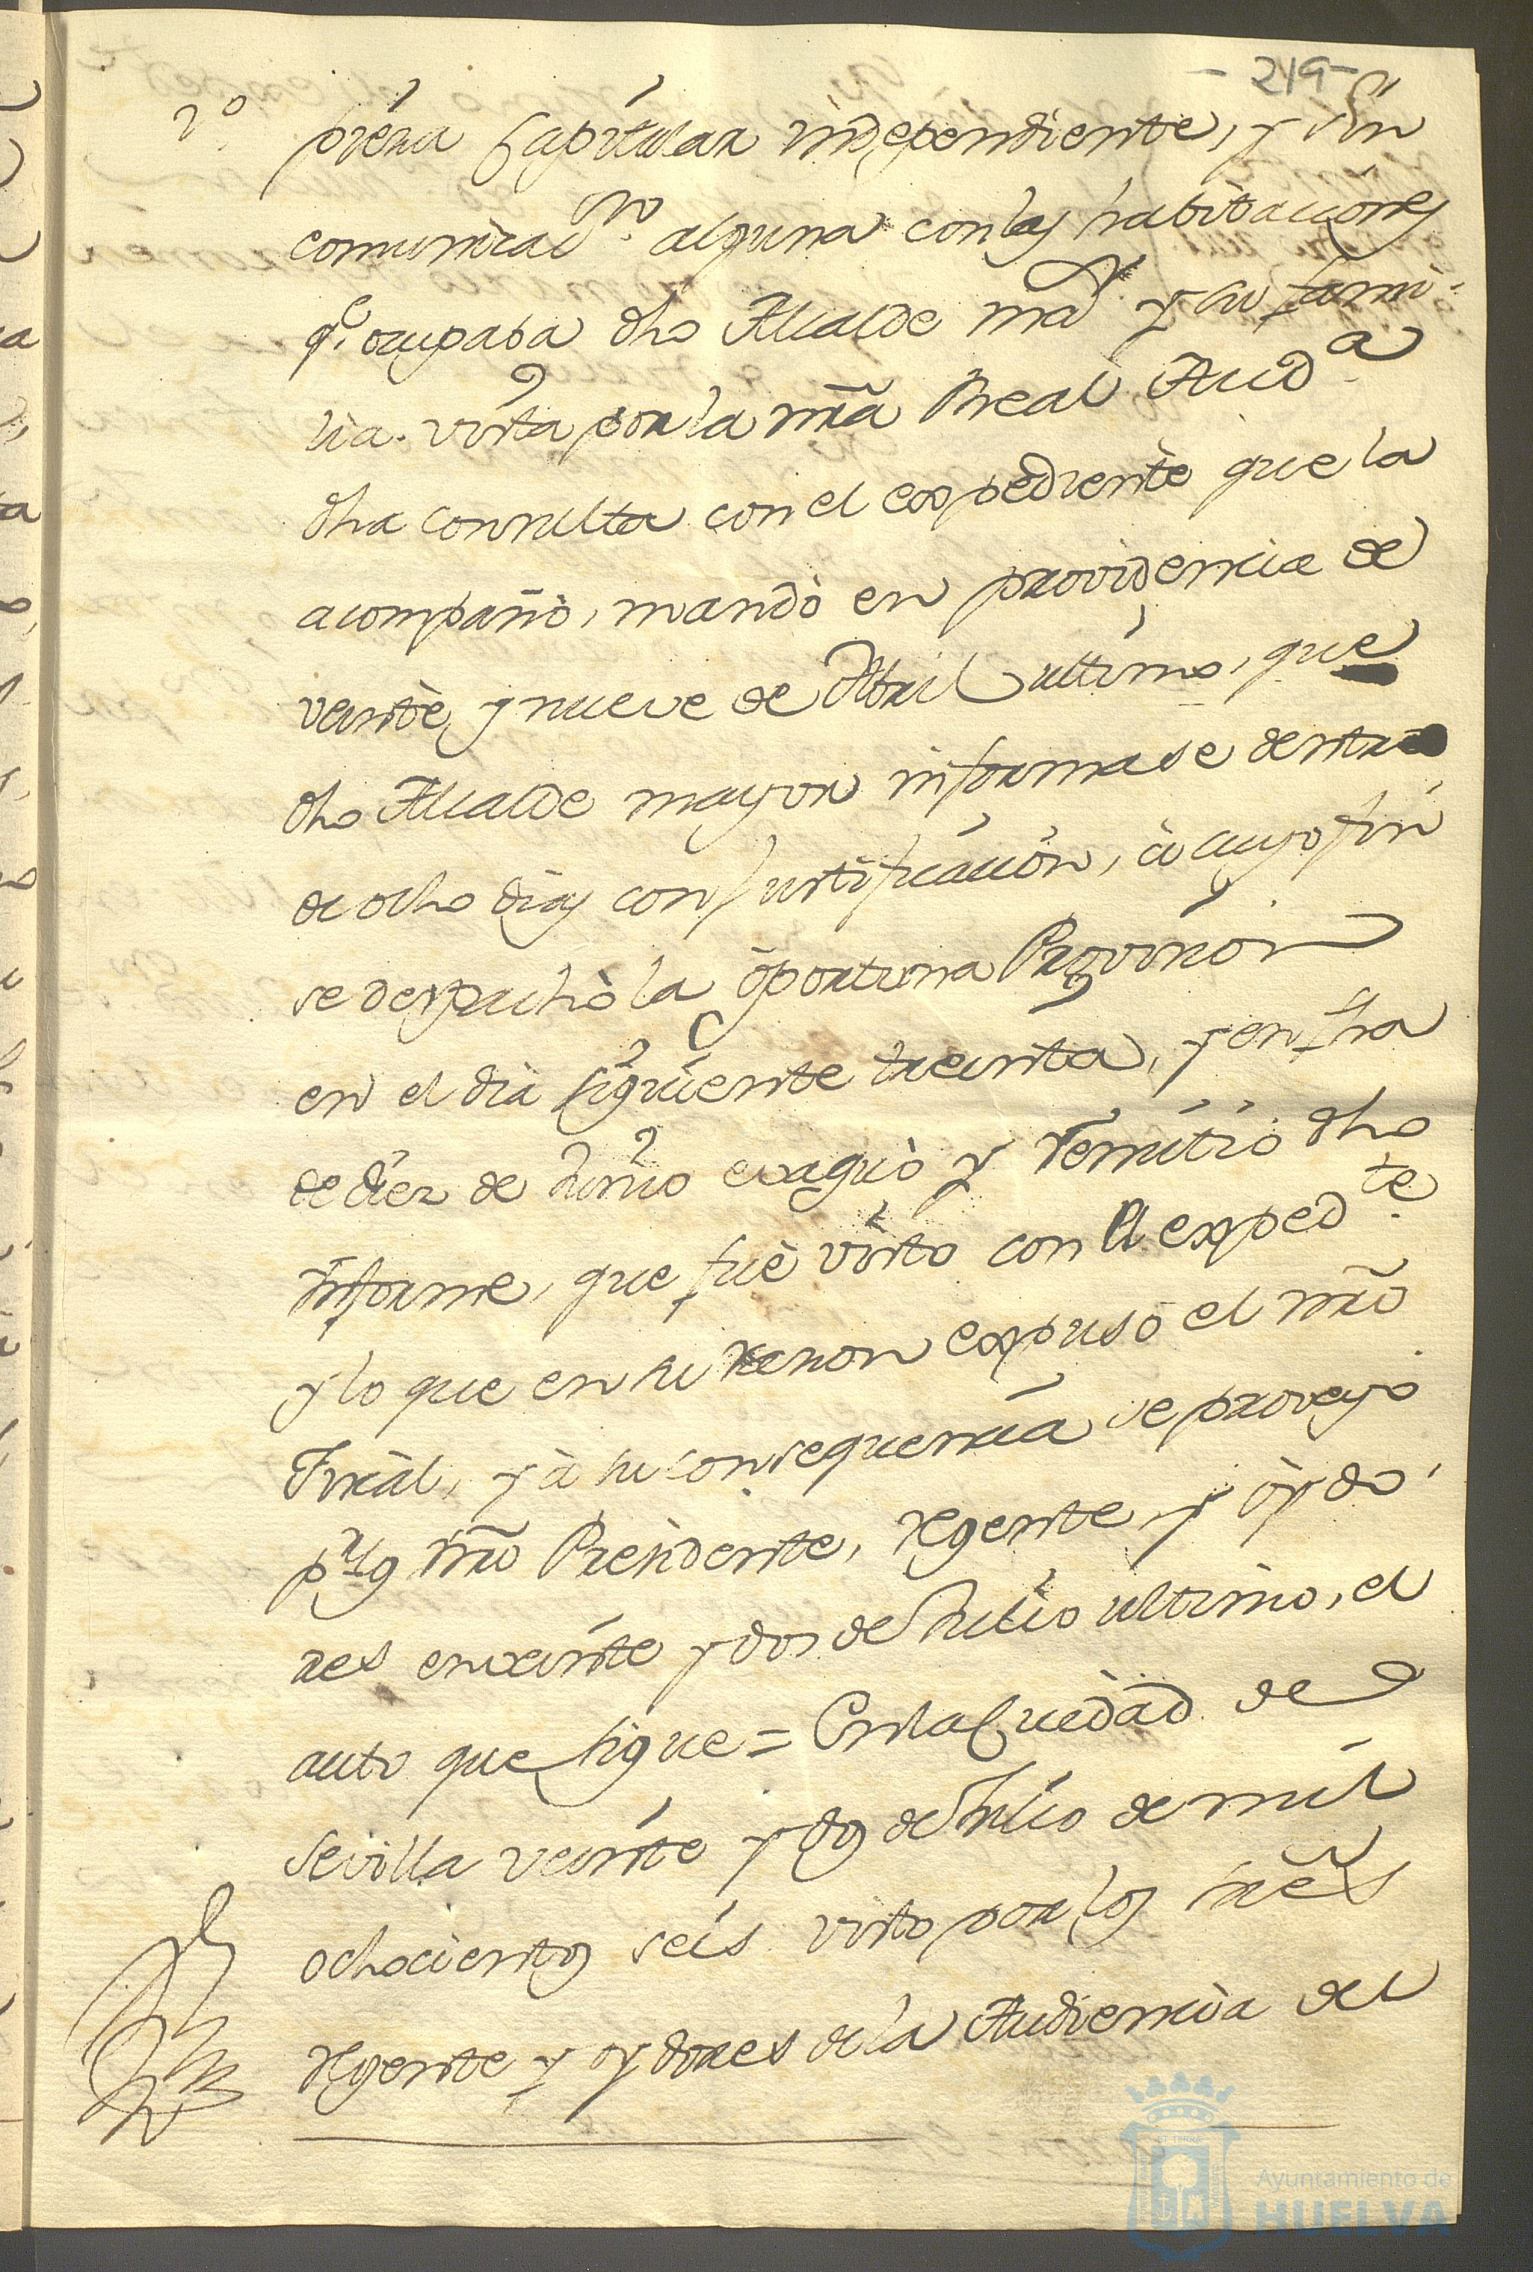 - 219 -
2º
pieza Capitular independiente, y sin
comunicacⁿº alguna con las habitaciones
q.e ocupaba dho Alcalde ma.r y su fami-
lia. vista por la nrã Real Aud.a
dha consulta con el expediente que la
acompañò, mandò en providencia de
veinte y nueve de Abril ultimo, que
dho Alcalde mayor informase dentro
de ocho dias con justificacion, à cuyo fin
se despachò la oportuna Provision
en el dia siguiente treinta, y en fha
de diez de Junio evaquò y remitiò dho
Informe, que fuè visto con el exped.te
y lo que en su razon expuso el nrõ
Fiscàl, y à su consequencia se proveyo
p.r los nrõ Presidente, Regente, y oydo
res en veinte y dos de Julio ultimo, el
auto que sigue = En la Ciudad de
Sevilla veinte y dos de Julio de mil
ochocientos seis visto por los Sres
Regente y oydores de la Audiencia de
Ayuntamiento de
HUELVA